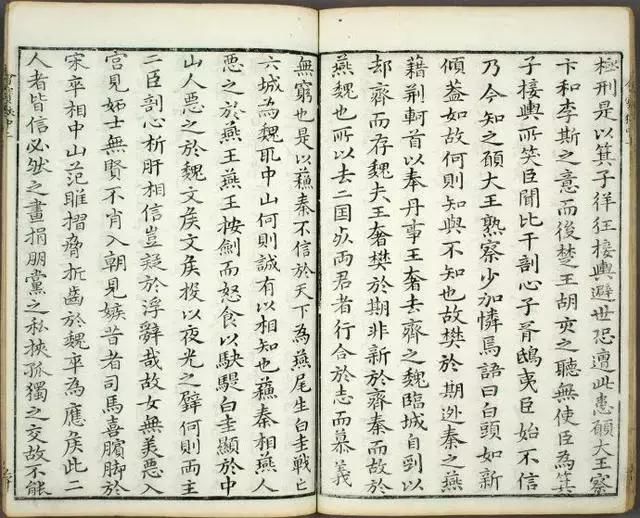 極刑是以箕子徉狂接輿避世恐遭此患願大王察
卞和李斯之意而後楚王胡亥之聽無使臣為箕
子接輿所笑臣聞比干剖心子胥鴟夷臣始不信
乃今知之願大王熟察少加憐焉語曰白頭如新
傾蓋如故何則知與不知也故樊於期逃秦之燕
藉荊軻首以奉丹事王奢去齊之魏臨城自剄以
却齊而存魏夫王奢樊於期非新於齊秦而故於
燕魏也所以去二囯死两君者行合於志而慕義
無窮也是以蘇秦不信於天下為燕尾生白圭戰亡
六城為魏取中山何則誠有以相知也蘇秦相燕人
惡之於燕王燕王按劍而怒食以駃騠白圭顯於中
山人惡之於魏文矦文矦投以夜光之璧何則兩主
二臣剖心析肝相信豈疑於浮辭哉故女無美惡入
宮見妬士無賢不肖入朝見嫉昔者司馬喜臏脚於
宋卒相中山范雎摺脅折齒於魏卒為應矦此二
人者皆信必然之畫捐朋黨之私挾孤獨之交故不能